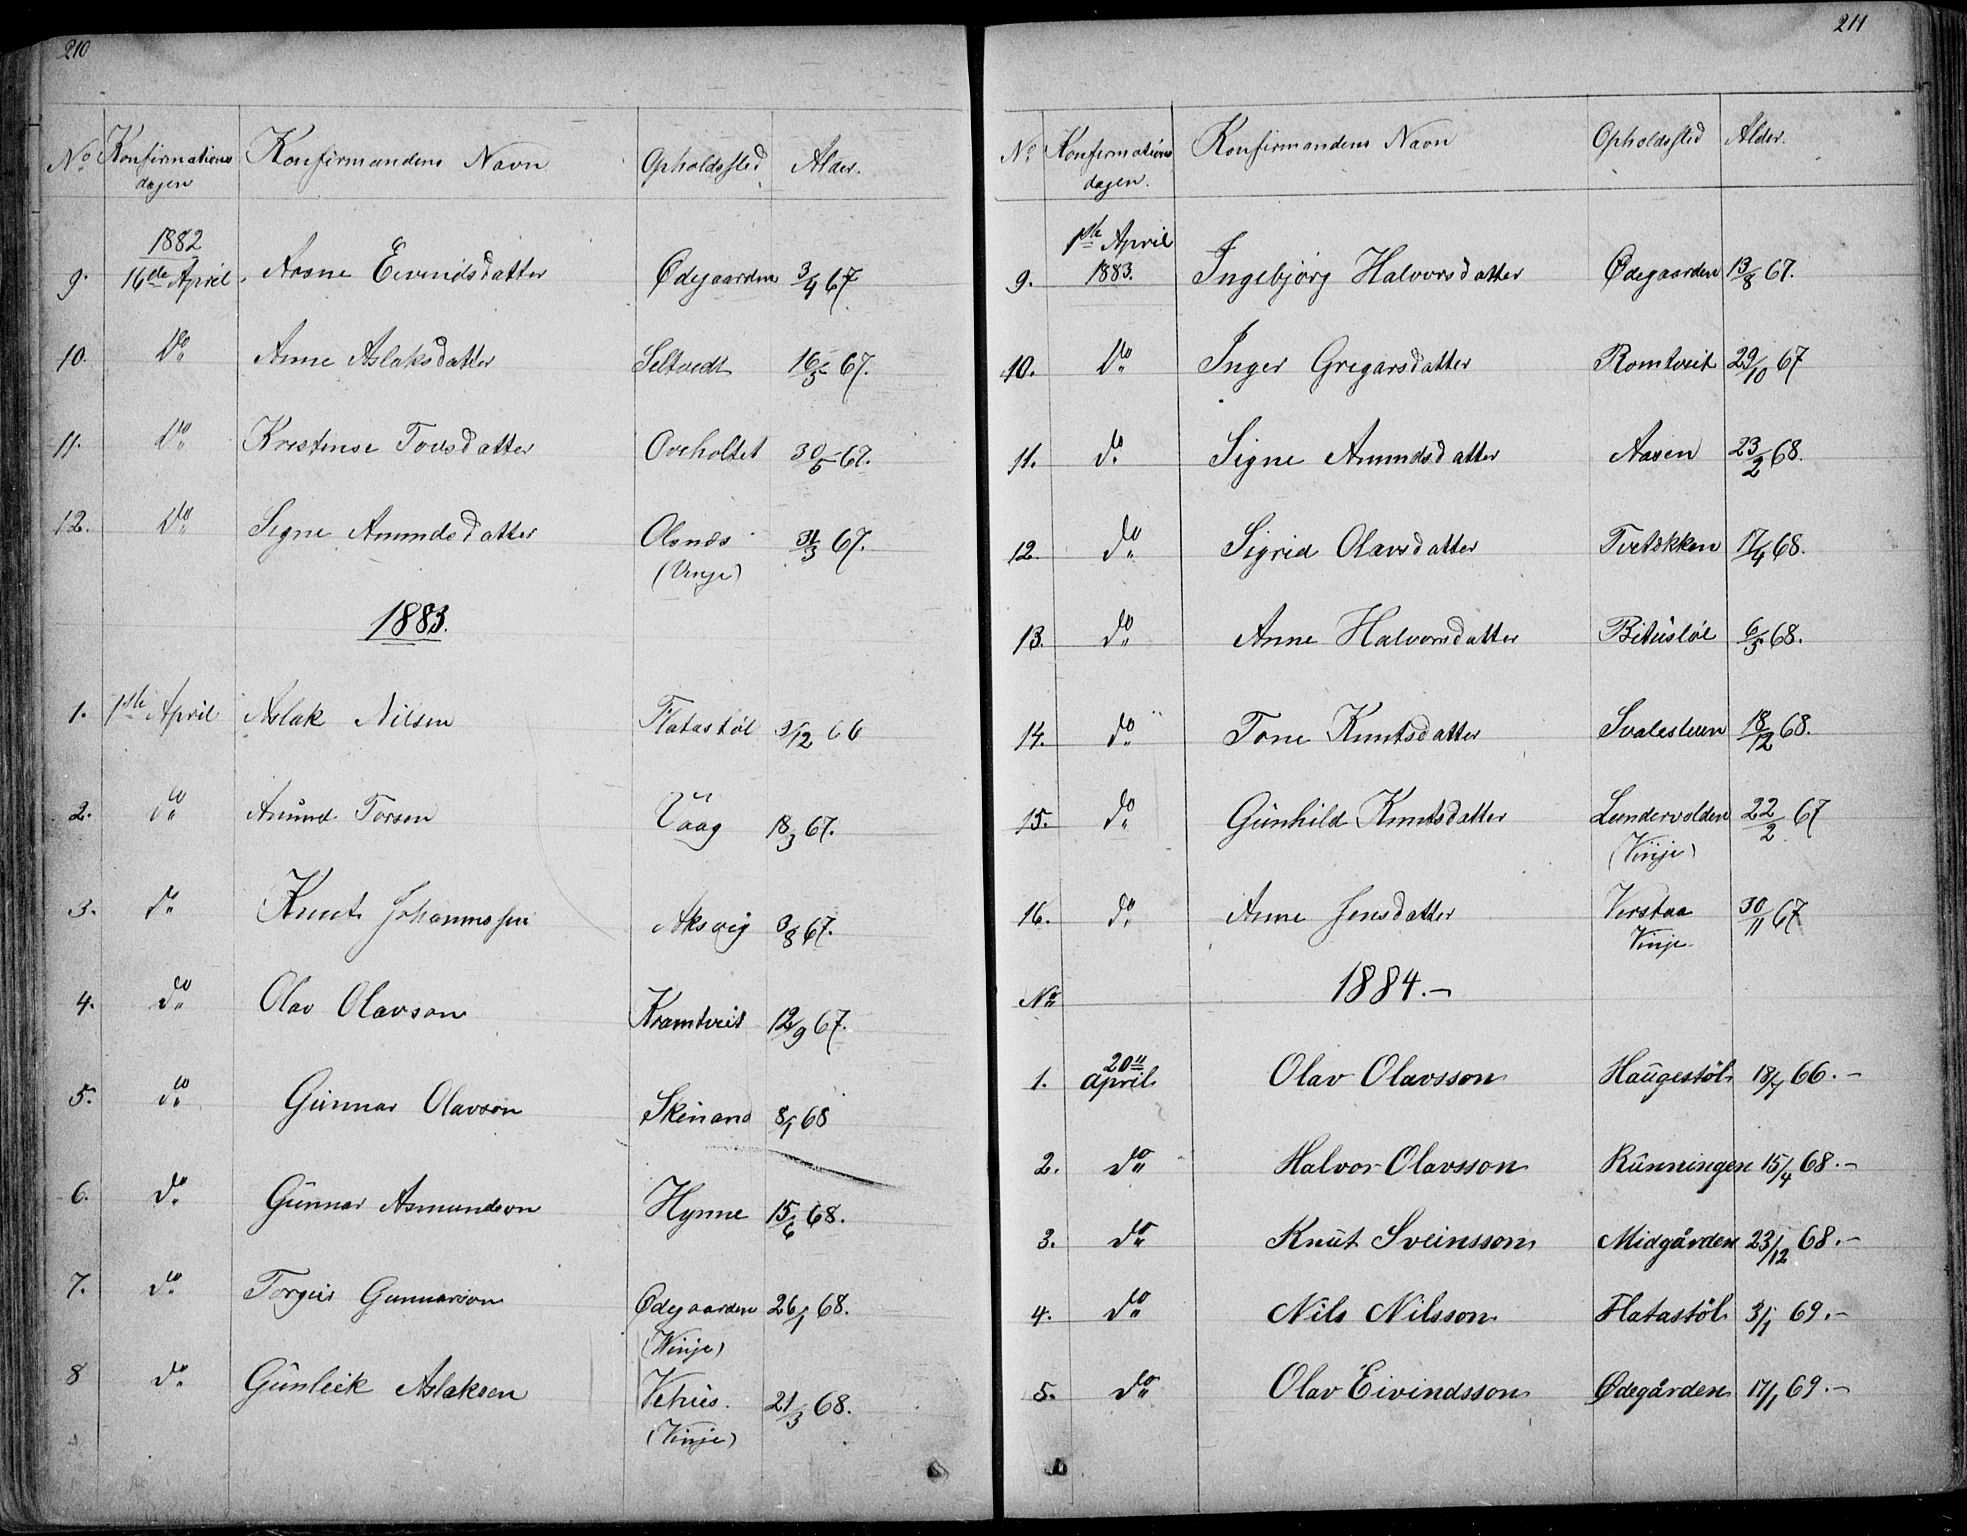 210
No Konfirmations dagen Konfirmandens Navn Opholdssted Alder.
1882
9. 16de April Aasne Eivindsdatter Ødegaarden 3/4 67
10. Do Anne Aslaksdatter Seltvedt 16/5 67.
11. Do Kristense Tovsdatter Oveholtet 30/5 67.
12. Do Signe Amundsdatter Olsnes 31/3 67.
(Vinje)
1883.
1. 1ste April Aslak Nilsen Flatastøl 3/12 66
2. do Amund Torsen Vaag 18/3 67.
3. do Knut Johannessen Aksvig 3/8 67.
4. do Olav Olavson Kramtveit 12/9 67.
5. do Gunnar Olavson Skinand 8/1 68
6. do Gunnar Asmundson Hynne 15/6 68.
7. do Torgeir Gunnarson Ødegaarden 26/1 68.
(Vinje)
8 do Gunleik Aslaksen Vehus. 21/3 68.
(Vinje)
211
No Konfirmations dagen. Konfirmandens Navn Opholdssted Alder.
1ste April
9. 1883. Ingebjørg Halvorsdatter Ødegaarden 13/8 67.
10. Do Inger Gregarsdatter Romtveit 29/10 67
11. do Signe Amundsdatter Aasen 23/2 68.
12. do Sigrid Olavsdatter Tvetækken 17/4 68.
13. do Anne Halvorsdatter Bitustøl 6/5 68.
14. do Tone Knutsdatter Svalesteen 18/12 68.
15. do Gunhild Knutsdatter Lundervolden 22/2 67
(Vinje)
16. do Anne Jensdatter Verstaa 30/11 67
Vinje
No 1884.-
1. 20" April Olav Olavsson Haugestøl 18/7 66.-
2. do Halvor Olavsson Runningen 15/4 68.-
3. do Knut Sveinsson Midgården 23/12 68.-
4. do Nils Nilsson Flatastöl 3/1 69.-
5. do Olav Eivindsson Ødegården 17/1 69.-